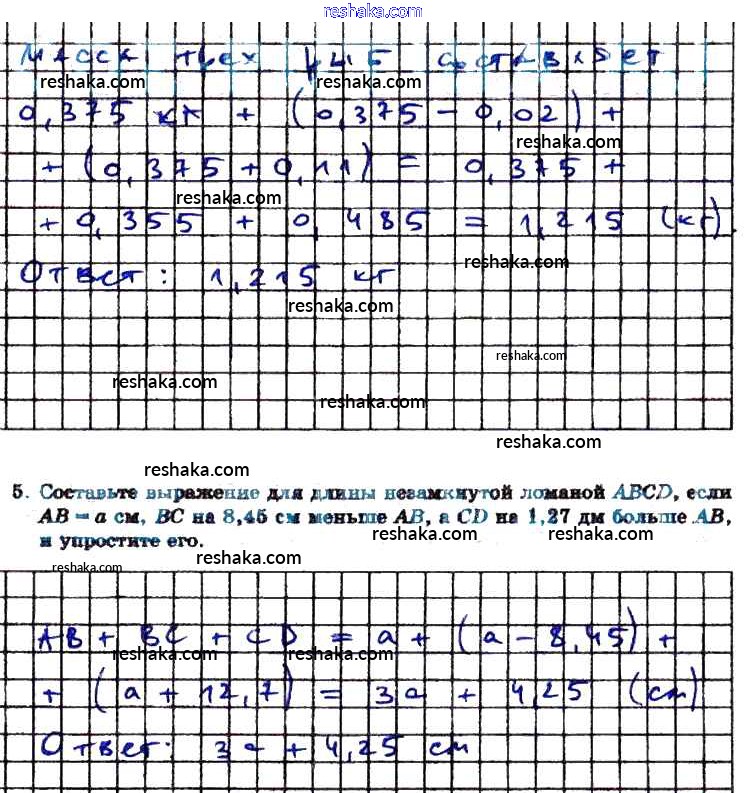 reshaka.com
Масса трех книг составляет
reshaka.com reshaka.com
0,375 кг + (0,375 - 0,02) +
reshaka.com
+ (0,375 + 0,11) = 0,375 +
reshaka.com
+ 0,355 + 0,485 = 1,215 (кг).
reshaka.com
Ответ: 1,215 кг
reshaka.com
reshaka.com
reshaka.com
reshaka.com
reshaka.com
5. Составьте выражение для длины незамкнутой ломаной ABCD, если
AB = a см, BC на 8,45 см меньше AB, а CD на 1,27 дм больше AB,
и упростите его.
reshaka.com reshaka.com
reshaka.com
AB + BC + CD = a + (a - 8,45) +
reshaka.com reshaka.com
+ (a + 12,7) = 3a + 4,25 (см)
Ответ: 3a + 4,25 см